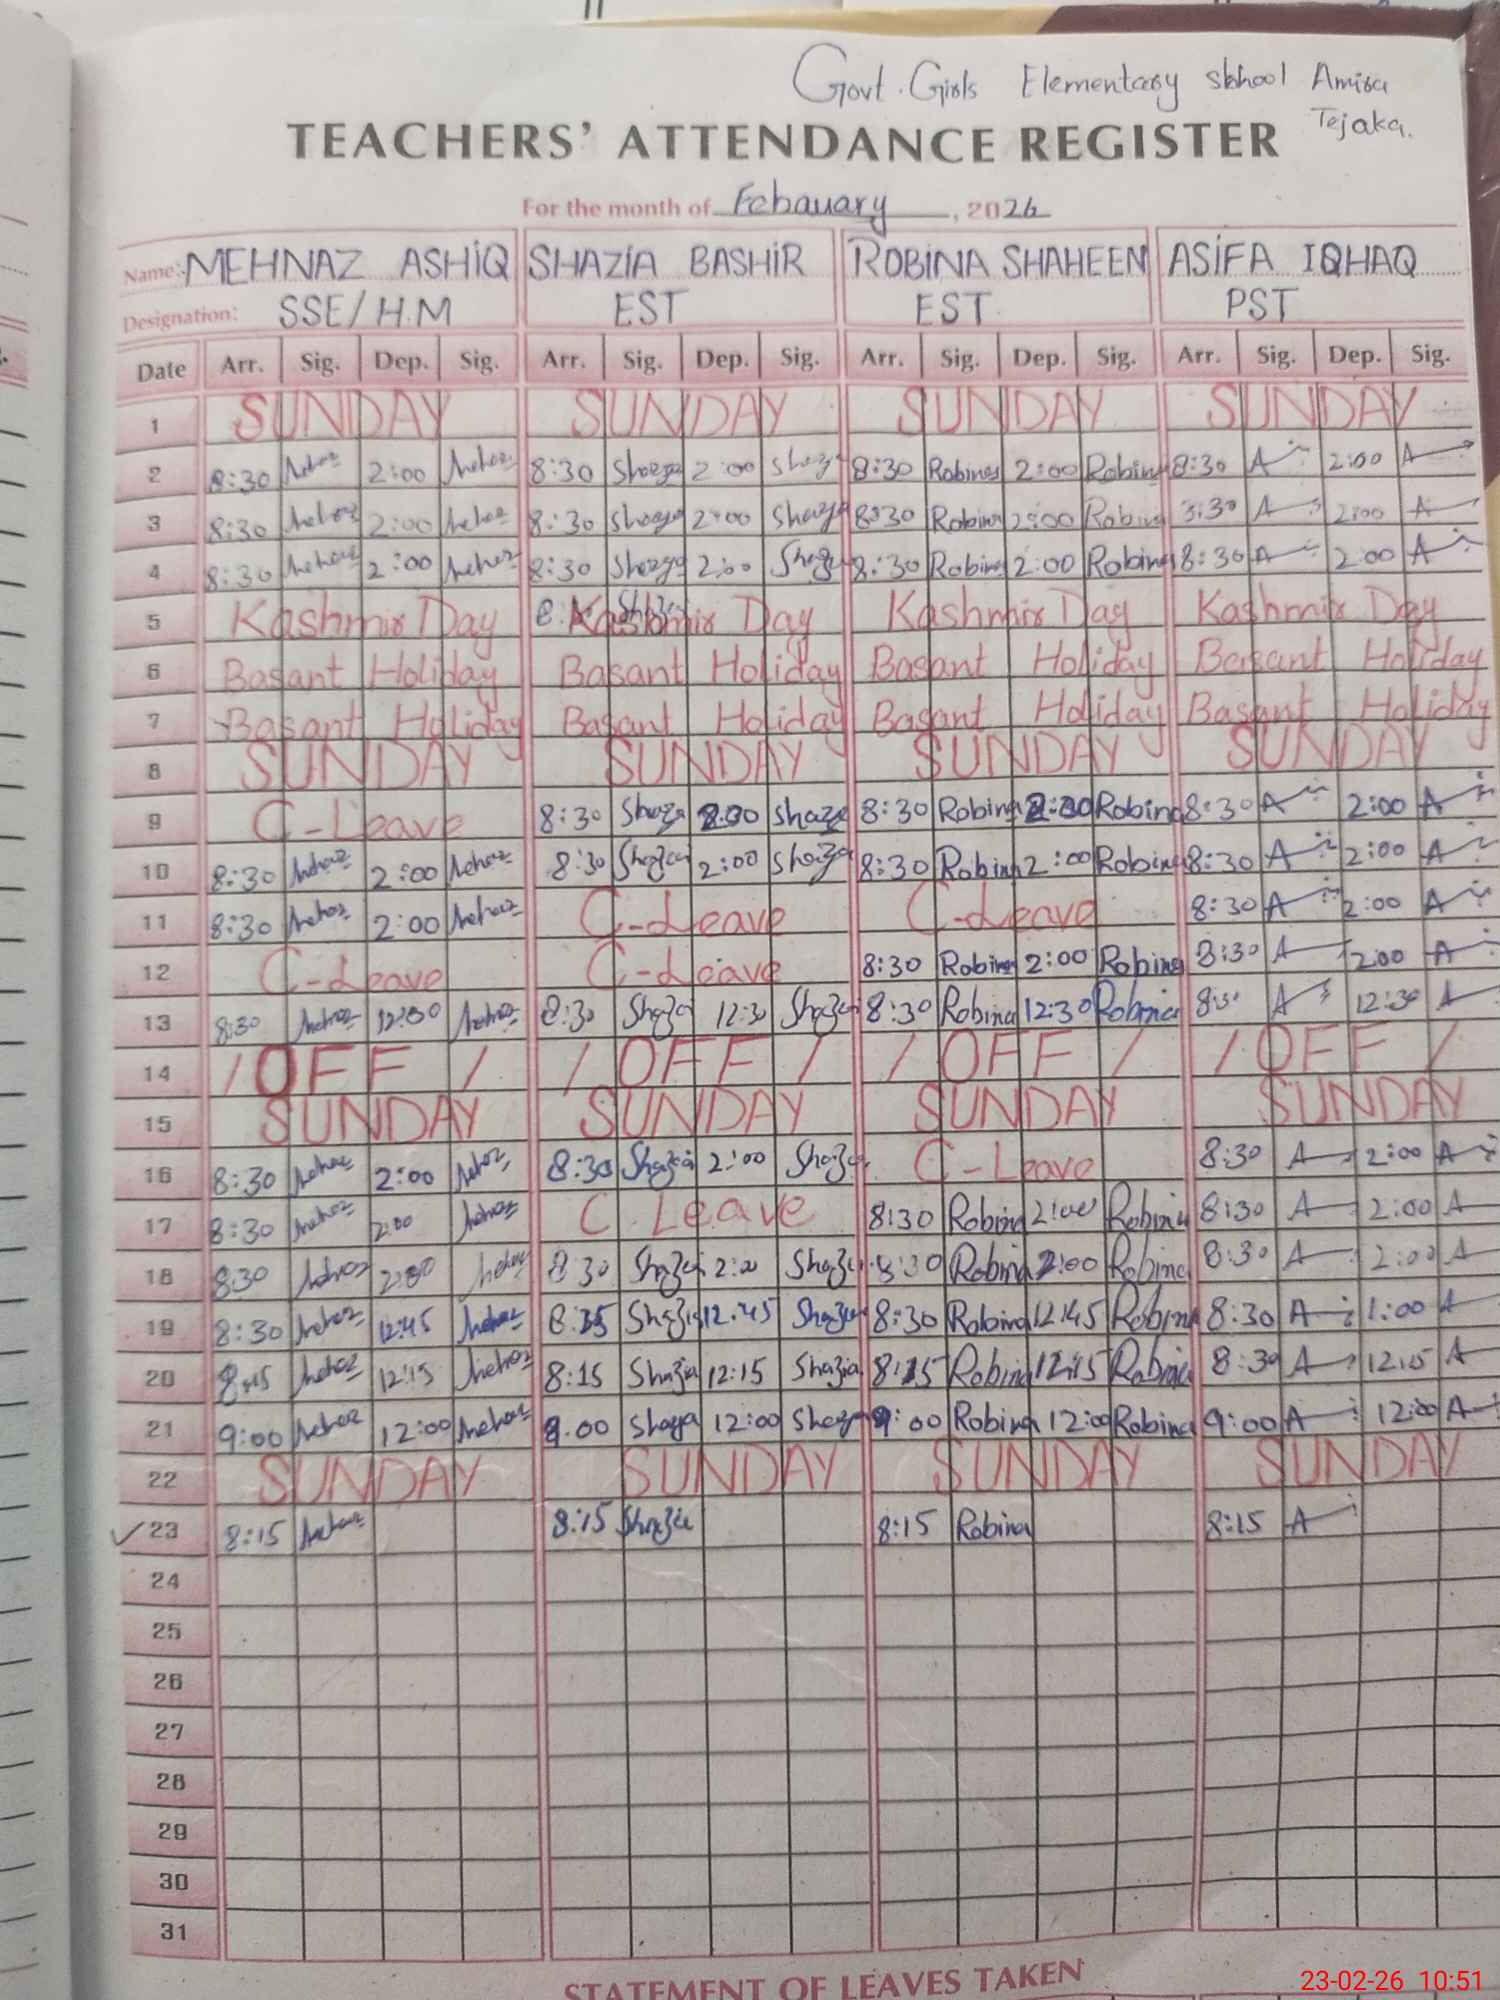 Govt. Girls Elementary skhool Amira
Tejaka.
TEACHERS' ATTENDANCE REGISTER
For the month of Febauary, 2026
Name: MEHNAZ ASHIQ SHAZIA BASHIR ROBINA SHAHEEN ASIFA IQHAQ
Designation: SSE/H.M EST EST. PST
Date Arr. Sig. Dep. Sig. Arr. Sig. Dep. Sig. Arr. Sig. Dep. Sig. Arr. Sig. Dep. Sig.
1 SUNDAY SUNDAY SUNDAY SUNDAY
2 8:30 2:00 8:30 2:00 8:30 Robina 2:00 Robina 8:30 A 2:00 A
3 8:30 2:00 8:30 2:00 8:30 Robina 2:00 Robina 8:30 A 2:00 A
4 8:30 2:00 8:30 2:00 8:30 Robina 2:00 Robina 8:30 A 2:00 A
5 Kashmir Day Kashmir Day Kashmir Day Kashmir Day
6 Basant Holiday Basant Holiday Basant Holiday Basant Holiday
7 Basant Holiday Basant Holiday Basant Holiday Basant Holiday
8 SUNDAY SUNDAY SUNDAY SUNDAY
9 C-Leave 8:30 2:00 8:30 Robina 2:00 Robina 8:30 A 2:00 A
10 8:30 2:00 8:30 2:00 8:30 Robina 2:00 Robina 8:30 A 2:00 A
11 8:30 2:00 C-Leave C-Leave 8:30 A 2:00 A
12 C-Leave C-Leave 8:30 Robina 2:00 Robina 8:30 A 2:00 A
13 8:30 12:30 8:30 12:30 8:30 Robina 12:30 Robina 8:30 A 12:30 A
14 / OFF / / OFF / / OFF / / OFF /
15 SUNDAY SUNDAY SUNDAY SUNDAY
16 8:30 2:00 8:30 2:00 C-Leave 8:30 A 2:00 A
17 8:30 2:00 C Leave 8:30 Robina 2:00 Robina 8:30 A 2:00 A
18 8:30 2:00 8:30 2:00 8:30 Robina 2:00 Robina 8:30 A 2:00 A
19 8:30 12:45 Shazia 12:45 Shazia 8:30 Robina 12:45 Robina 8:30 A 1:00 A
20 8:15 12:15 8:15 Shazia 12:15 Shazia 8:15 Robina 12:15 Robina 8:30 A 12:15 A
21 9:00 12:00 9:00 12:00 9:00 Robina 12:00 Robina 9:00 A 12:00 A
22 SUNDAY SUNDAY SUNDAY SUNDAY
23 8:15 8:15 Shazia 8:15 Robina 8:15 A
24
25
26
27
28
29
30
31
STATEMENT OF LEAVES TAKEN
23-02-26 10:51